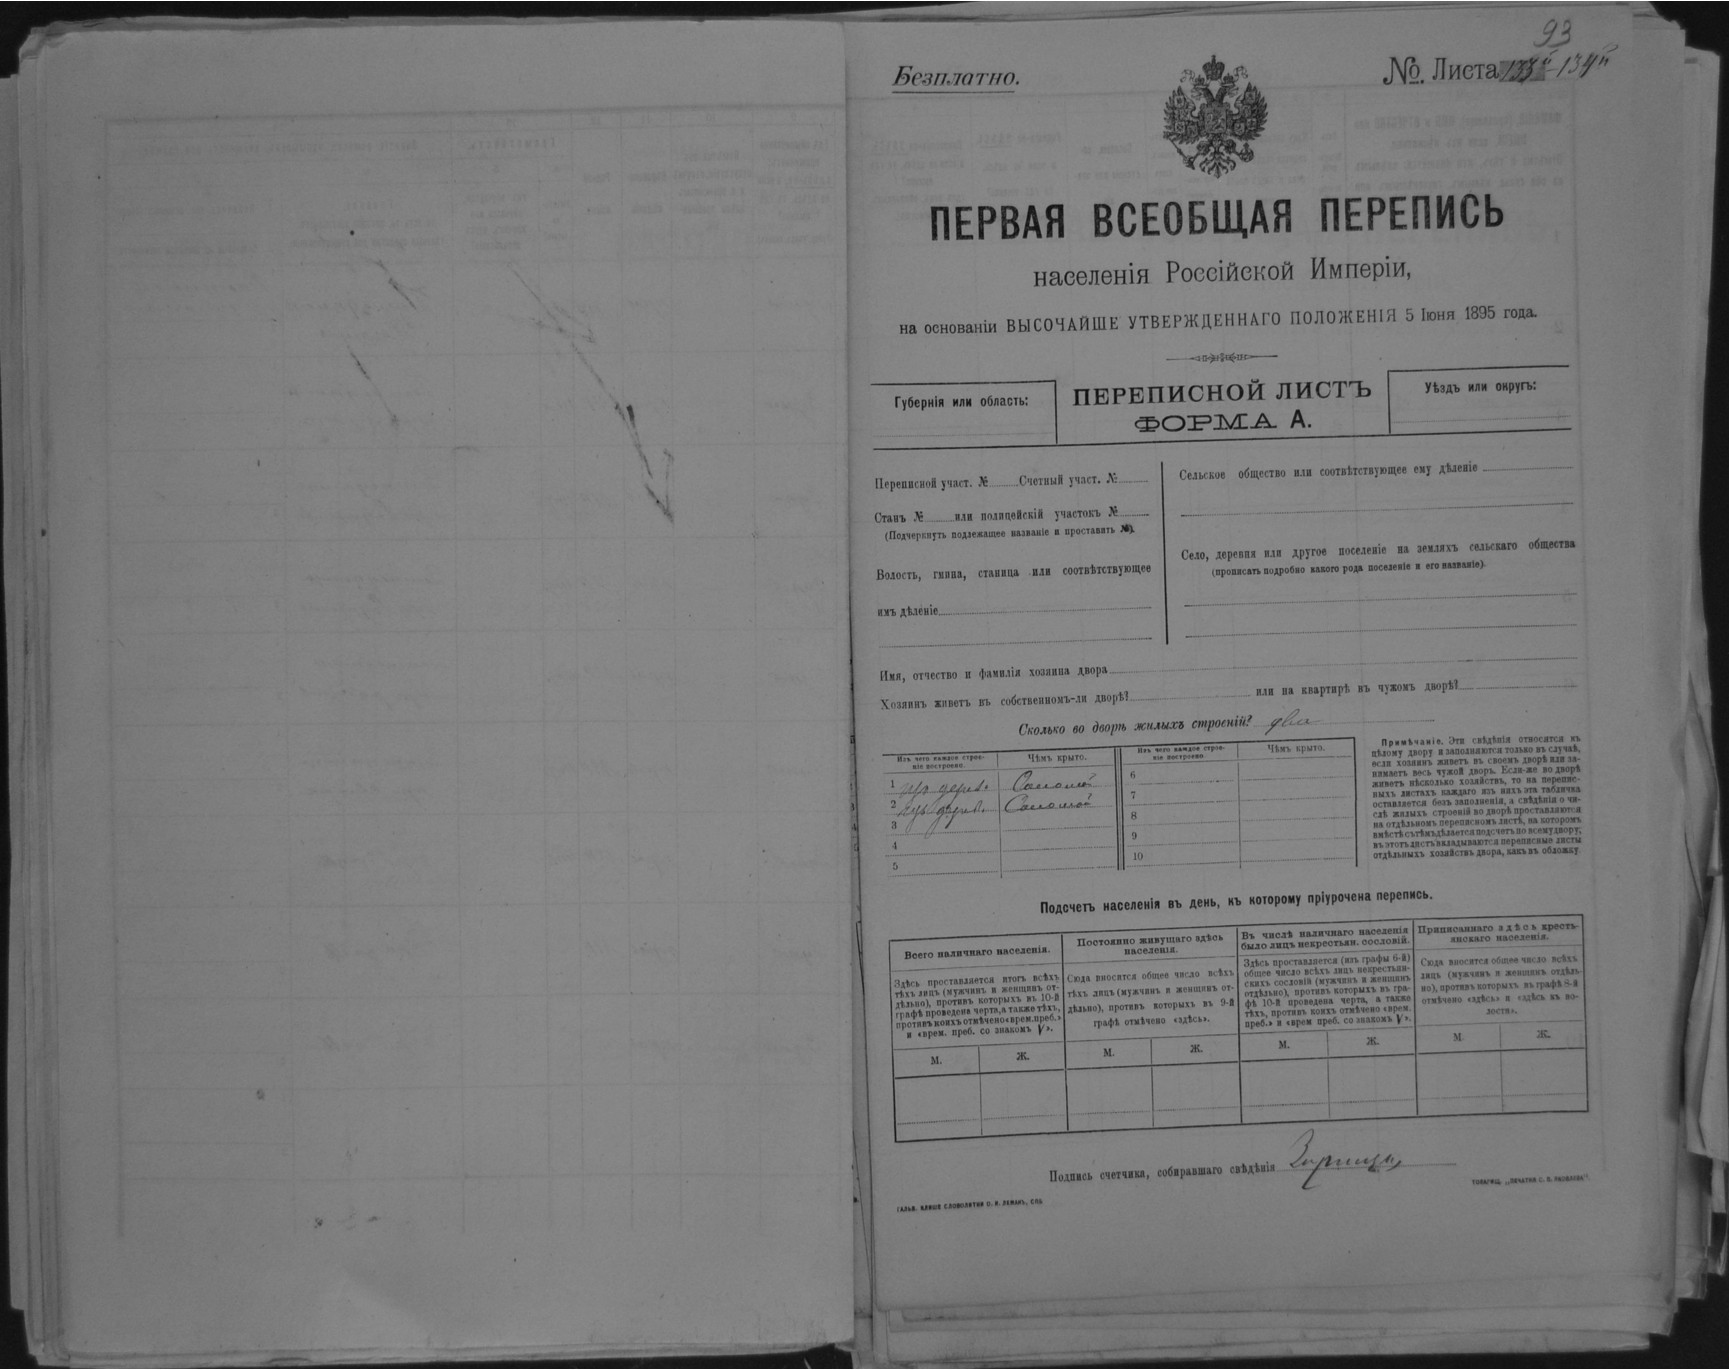 93
Безплатно.
№. Листа 133й-134й
ПЕРВАЯ ВСЕОБЩАЯ ПЕРЕПИСЬ
населенія Россійской Имперіи,
на основаніи ВЫСОЧАЙШЕ УТВЕРЖДЕННАГО ПОЛОЖЕНІЯ 5 Іюня 1895 года.
Губернія или область:
ПЕРЕПИСНОЙ ЛИСТЪ
ФОРМА А.
Уѣздъ или округъ:
Переписной участ. № Счетный участ. №
Станъ № или полицейскій участокъ №
(Подчеркнуть подлежащее названіе и проставить №).
Волость, гмина, станица или соотвѣтствующее
имъ дѣленіе
Сельское общество или соотвѣтствующее ему дѣленіе
Село, деревня или другое поселеніе на земляхъ сельскаго общества
(прописать подробно какого рода поселеніе и его названіе).
Имя, отчество и фамилія хозяина двора
Хозяинъ живетъ въ собственномъ-ли дворѣ? или на квартирѣ въ чужомъ дворѣ?
Сколько во дворѣ жилыхъ строеній? два
Изъ чего каждое строе-
ніе построено.
Чѣмъ крыто.
1 изъ дерев. Соломой
2 изъ дерев. Соломой
3
4
5
Изъ чего каждое строе-
ніе построено
Чѣмъ крыто.
6
7
8
9
10
Примѣчаніе. Эти свѣдѣнія относятся къ
цѣлому двору и заполняются только въ случаѣ,
если хозяинъ живетъ въ своемъ дворѣ или за-
нимаетъ весь чужой дворъ. Если-же во дворѣ
живетъ нѣсколько хозяйствъ, то на перепис-
ныхъ листахъ каждаго изъ нихъ эта табличка
оставляется безъ заполненія, а свѣдѣнія о чи-
слѣ жилыхъ строеній во дворѣ проставляются
на отдѣльномъ переписномъ листѣ, на которомъ
вмѣстѣ съ тѣмъ дѣлается подсчетъ по всему двору;
въ этотъ листъ вкладываются переписные листы
отдѣльныхъ хозяйствъ двора, какъ въ обложку.
Подсчетъ населенія въ день, къ которому пріурочена перепись.
Всего наличнаго населенія.
Здѣсь проставляется итогъ всѣхъ
тѣхъ лицъ (мужчинъ и женщинъ от-
дѣльно), противъ которыхъ въ 10-й
графѣ проведена черта, а также тѣхъ,
противъ коихъ отмѣчено «врем. преб.»
и «врем. преб. со знакомъ V».
М. Ж.
Постоянно живущаго здѣсь
населенія.
Сюда вносится общее число всѣхъ
тѣхъ лицъ (мужчинъ и женщинъ от-
дѣльно), противъ которыхъ въ 9-й
графѣ отмѣчено «здѣсь».
М. Ж.
Въ числѣ наличнаго населенія
было лицъ некрестьян. сословій.
Здѣсь проставляется (изъ графы 6-й)
общее число всѣхъ лицъ некрестьян-
скихъ сословій (мужчинъ и женщинъ
отдѣльно), противъ которыхъ въ гра-
фѣ 10-й проведена черта, а также
тѣхъ, противъ коихъ отмѣчено «врем.
преб.» и «врем преб. со знакомъ V».
М. Ж.
Приписаннаго здѣсь кресть-
янскаго населенія.
Сюда вносится общее число всѣхъ
лицъ (мужчинъ и женщинъ отдѣль-
но), противъ которыхъ въ графѣ 8-й
отмѣчено «здѣсь» и «здѣсь къ во-
лости».
М. Ж.
Подпись счетчика, собиравшаго свѣдѣнія
ГАЛЬВ. КЛИШЕ СЛОВОЛИТНИ О. И. ЛЕМАНЪ, СПБ.
ТОВАРИЩ. „ПЕЧАТНИ С. П. ЯКОВЛЕВА".